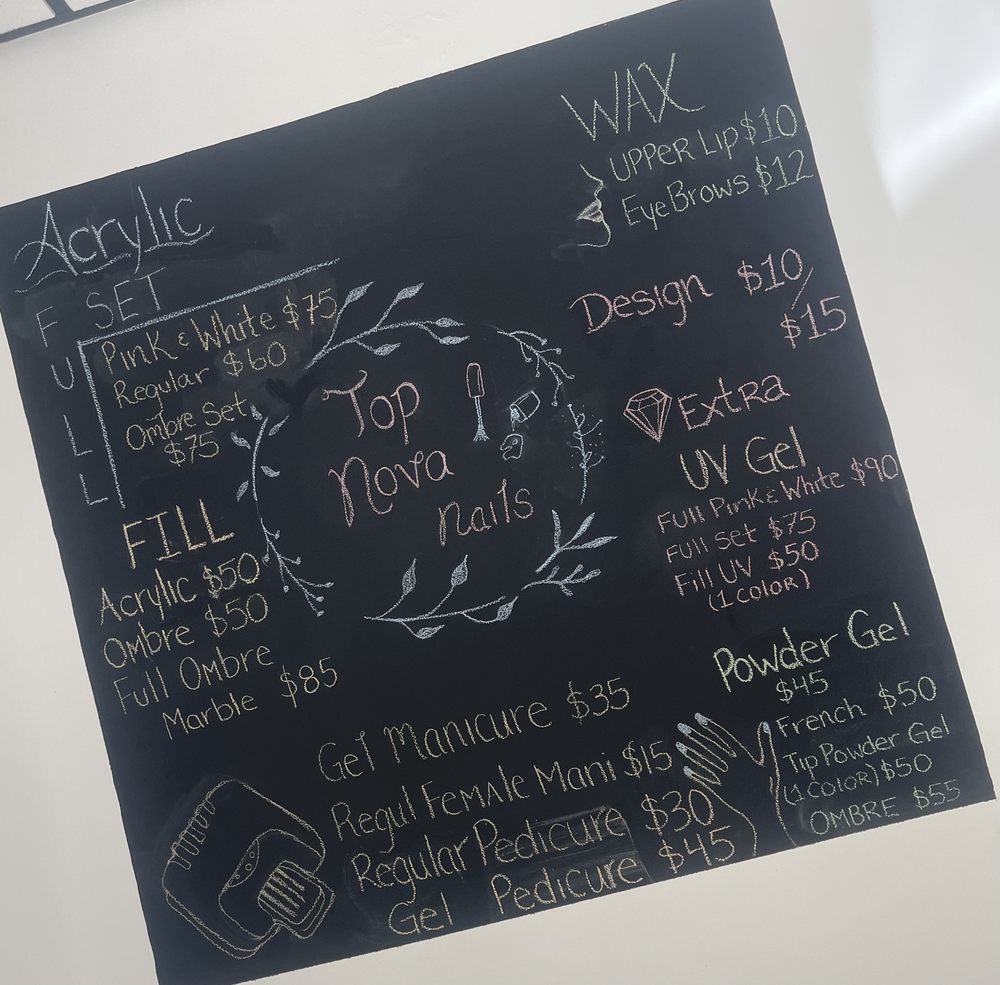 Acrylic
FULL SET
Pink & White $75
Regular $60
Ombre Set
$75
FILL
Acryllic $50
Ombre $50
Full Ombre
Marble $85
Top
Nova
nails
WAX
UPPER LIP $10
EyeBrows $12
Design $10/
$15
Extra
UV Gel
Full Pink & White $90
Full set $75
Fill UV $50
(1 COLOR)
Powder Gel
$45
French $50
Tip Powder Gel
(1 COLOR) $50
OMBRE $55
Gel Manicure $35
Regul FEMALE Mani $15
Regular Pedicure $30
Gel Pedicure $45